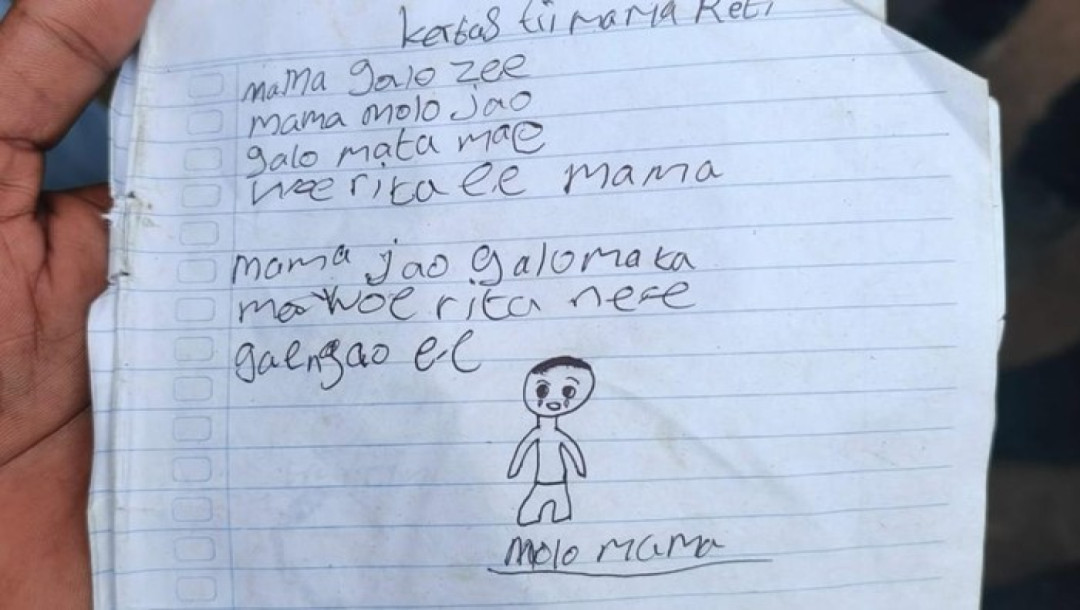 kertas tii mama Reti
mama galo zee
mama molo jao
galo mata mae
woe rita ee mama
mama jao galo mata
mae woe rita ne e e
gae ngao ee
molo mama